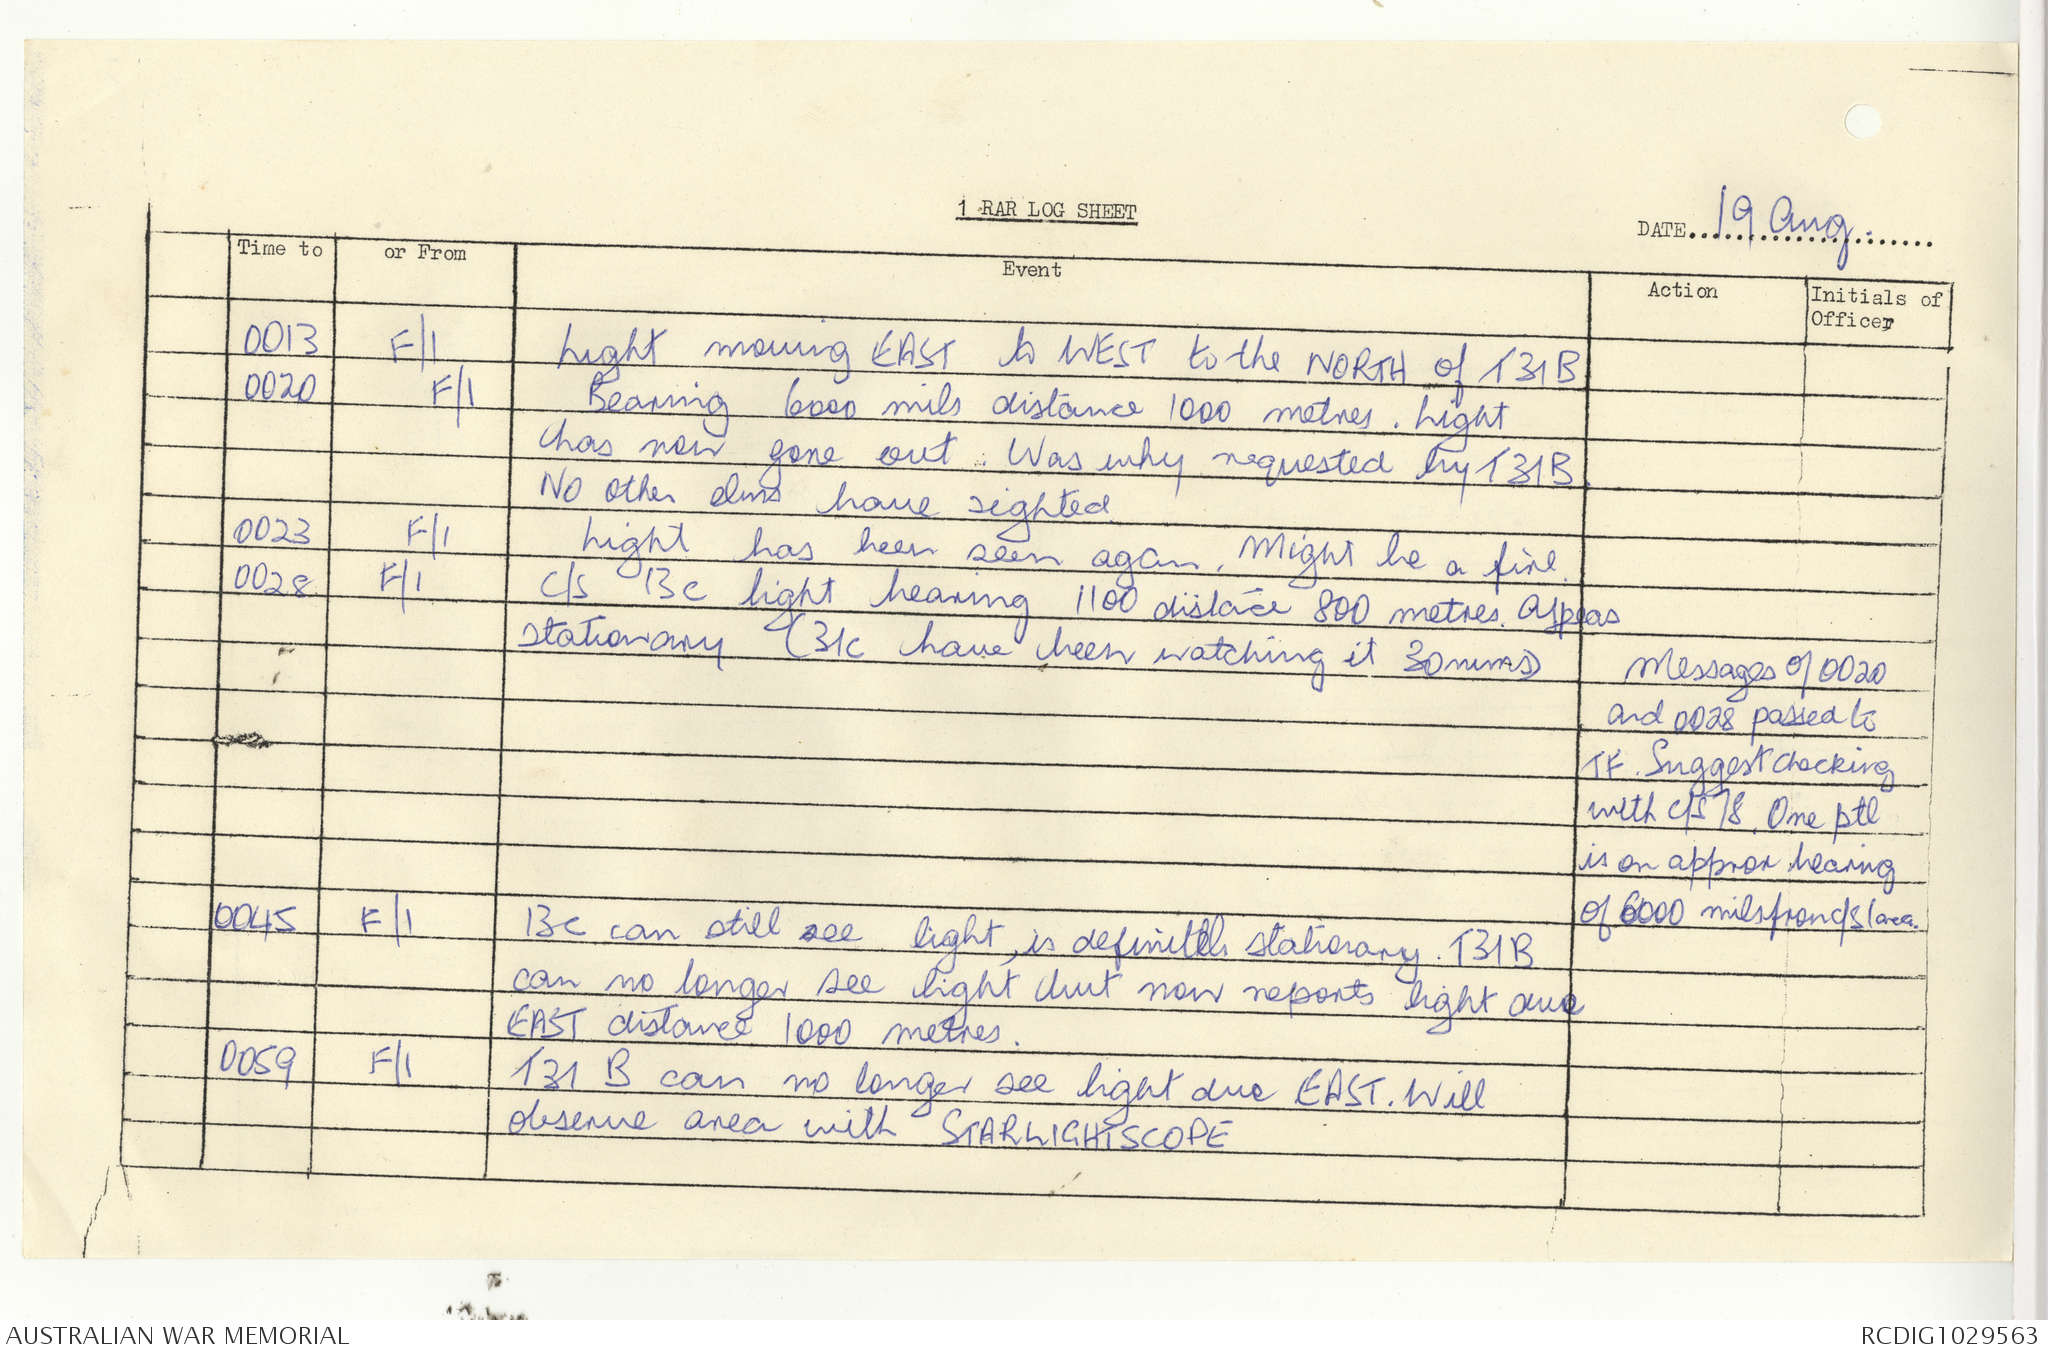 1 RAR LOG SHEET
DATE 19 Aug.
Time to or From Event Action Initials of Officer
0013 F/1 Light moving EAST to WEST to the NORTH of T31B
0020 F/1 Bearing 6000 mils distance 1000 metres. Light
has now gone out. Was why requested by T31B
No other elms have sighted
0023 F/1 Light has been seen again. Might be a fire.
0028 F/1 C/S 13C light bearing 1100 distace 800 metres. Appeas
stationary (31c have been watching it 30 mins)
Messages of 0020
and 0028 passed to
TF. Suggest checking
with C/S 78. One ptl
is on approx bearing
of 6000 mils from C/S 1 area.
0045 F/1 13c can still see light, is definitely stationary. T31B
can no longer see light but now reports light due
EAST distance 1000 metres.
0059 F/1 T31 B can no longer see light due EAST. Will
observe area with STARLIGHTSCOPE
AUSTRALIAN WAR MEMORIAL
RCDIG1029563